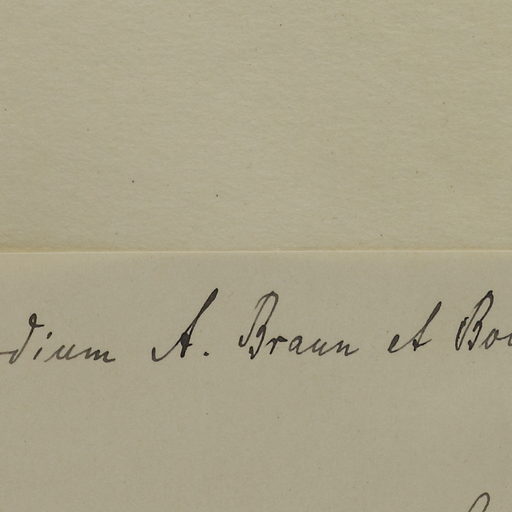 dium A. Braun et Bou